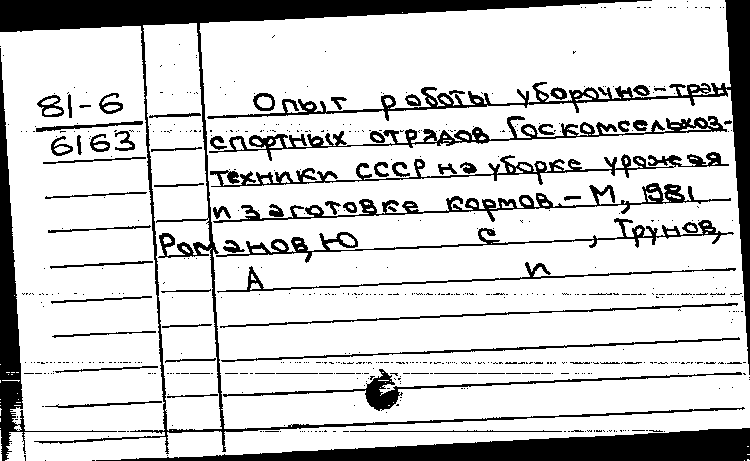 81-6
6163
Опыт работы уборочно-тран-
спортных отрядов Госкомсельхоз-
техники СССР на уборке урожая
и заготовке кормов.-М., 1981.
Романов, Ю С , Трунов,
А П